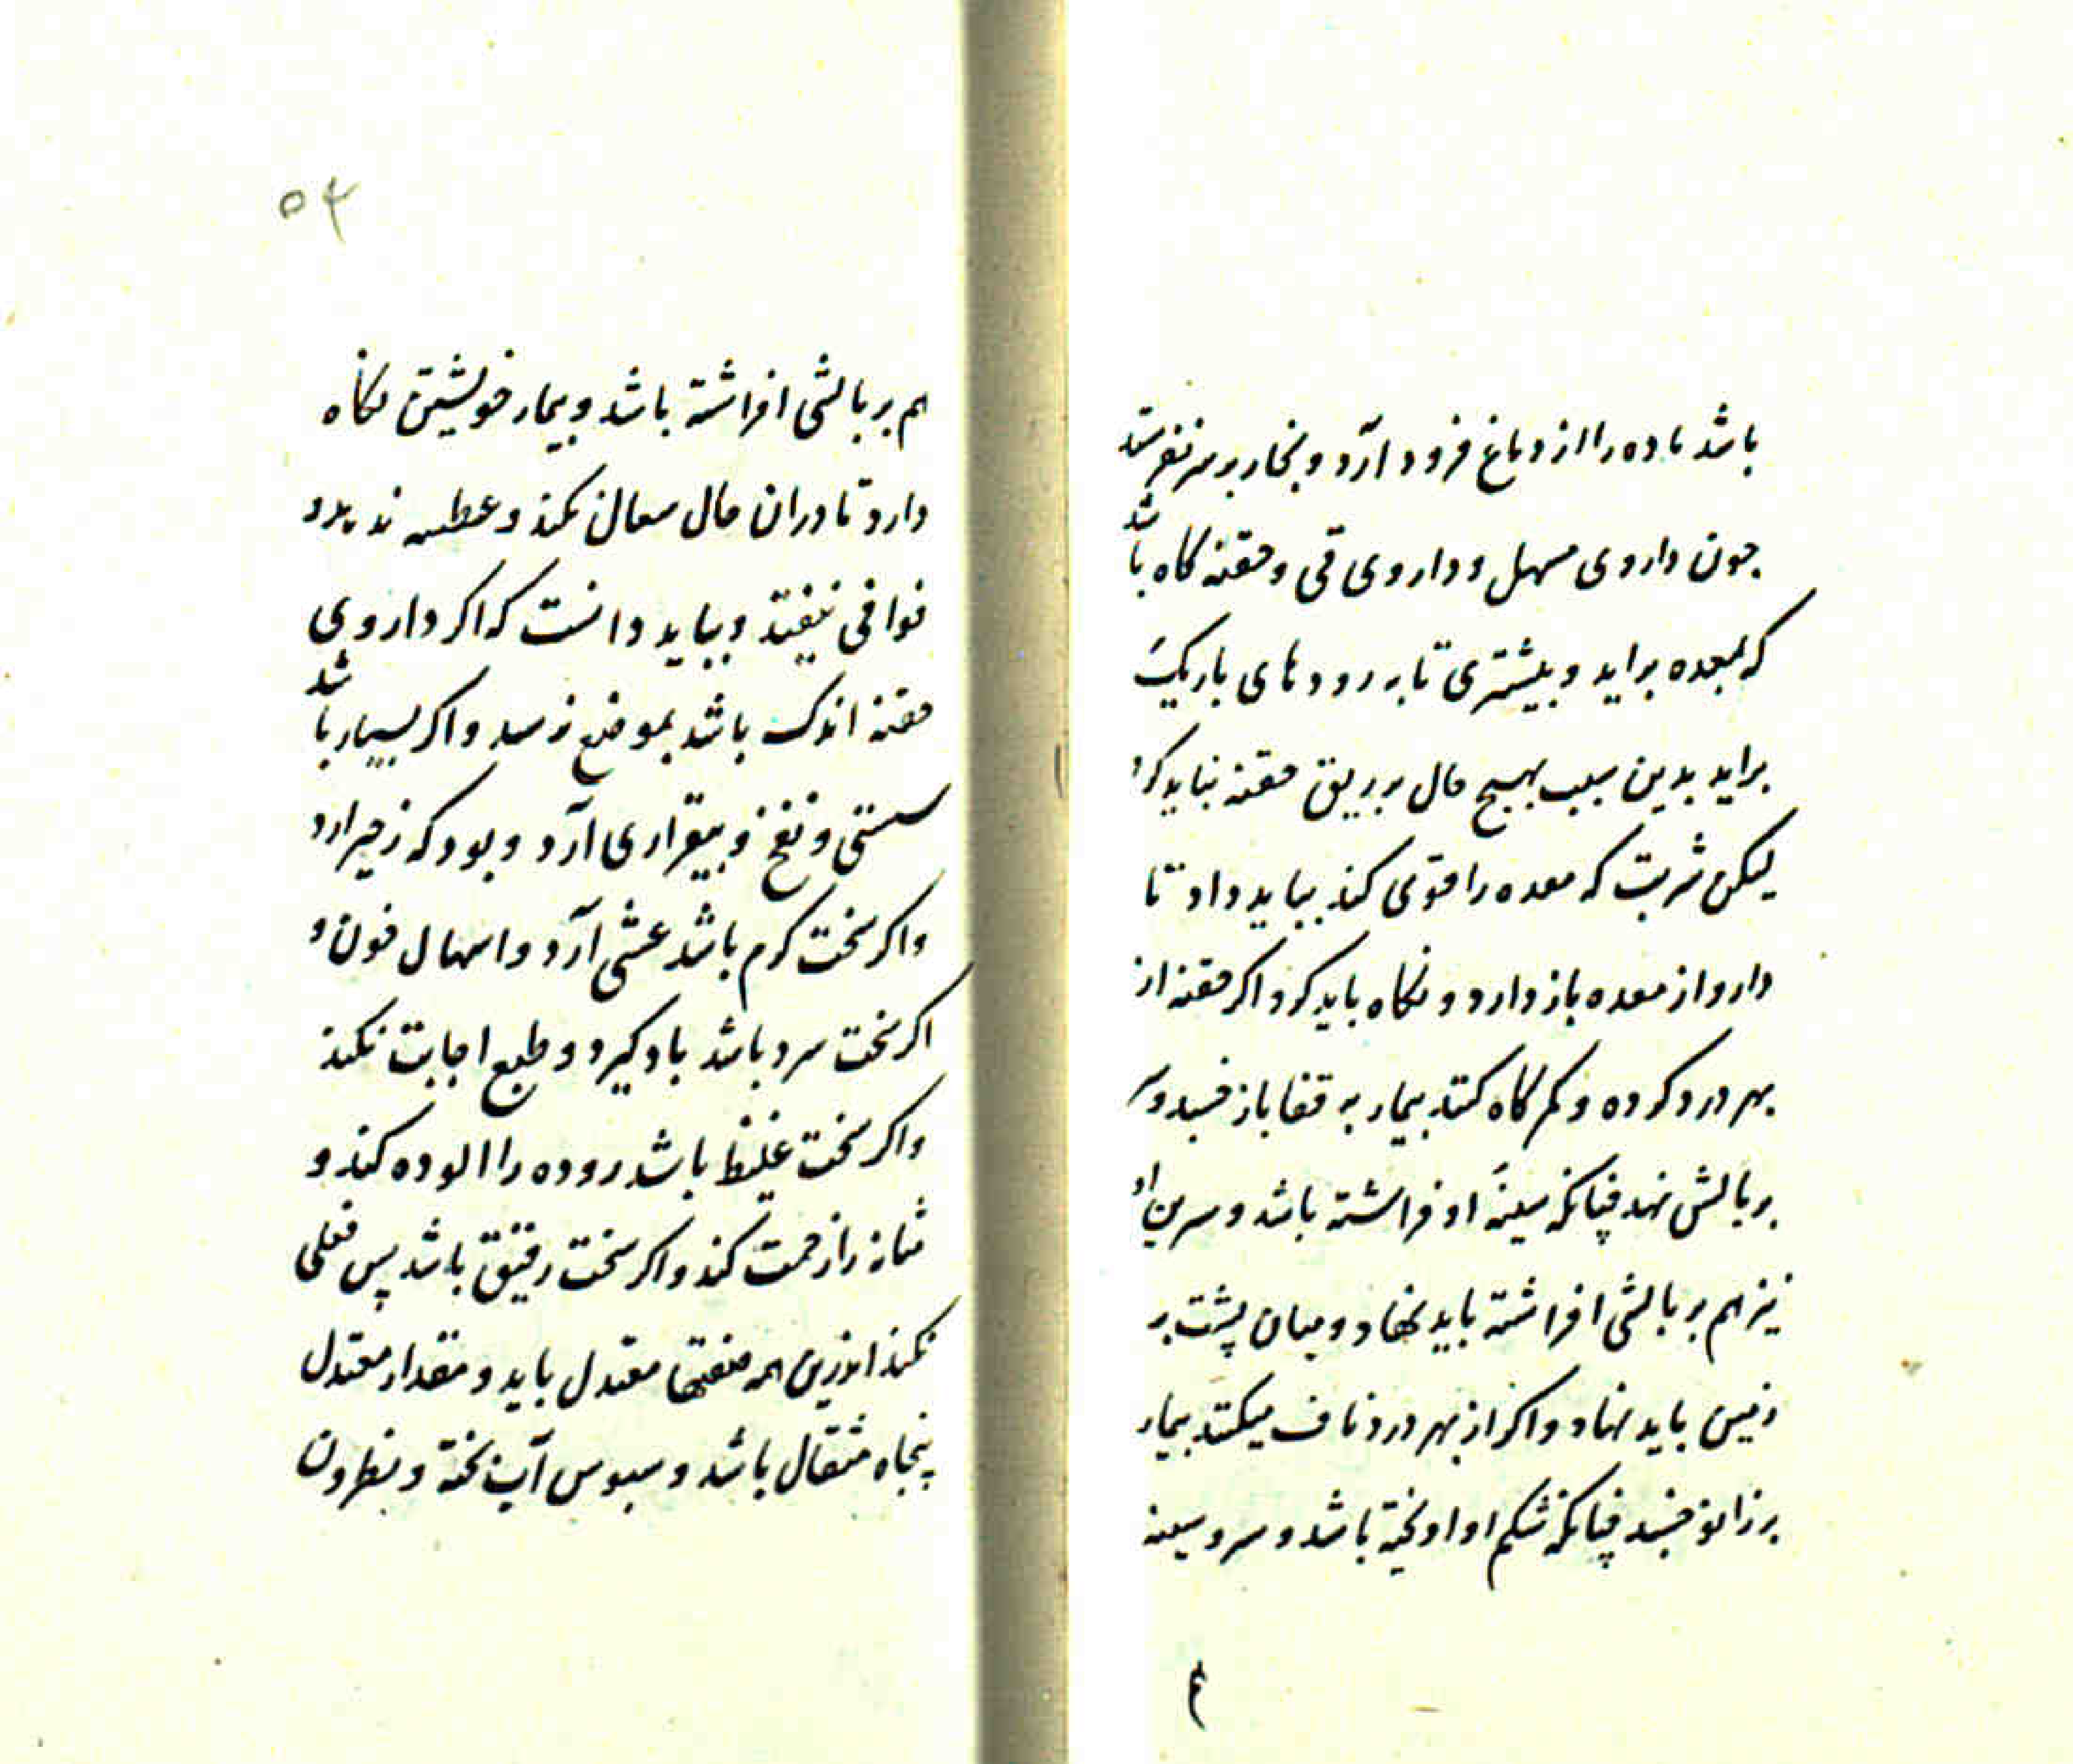 باشد ماده را از دماغ فرود آرد و بخار بر سر نفرستد
جون داروی مسهل و داروی قی و حقنه کاه باشد
که بمعده براید و بیشتری تا به رودهای باریک
براید بدین سبب بهیج حال بر ریق حقنه نباید کرد
لیکن شربت که معده را قوی کند بباید داد تا
دارو از معده باز دارد و نکاه باید کرد اکر حقنه از
بهر درد کرده و کمرکاه کنند بیمار به قفا باز خسبد و سر
بر بالش نهد چنانکه سینهٔ او فراشته باشد و سرین او
نیز هم بر بالشی افراشته باید نهاد و میان پشت بر
زمین باید نهاد و اکر از بهر درد ناف میکنند بیمار
بر زانو خسبد چنانکه شکم او اویخته باشد و سر و سینه
م
۵۴
هم بر بالشی افراشته باشد و بیمار خویشتن نکاه
دارد تا دران حال سعال نکند و عطسه ندهد و
فواقی نیفتد و بباید دانست که اکر داروی
حقنه اندک باشد بموضع نرسد و اکر بسیار باشد
سستی و نفخ و بیقراری آرد و بود که زحیر ارد
و اکر سخت کرم باشد غشی آرد و اسهال خون و
اکر سخت سرد باشد باد کیرد و طبع اجابت نکند
و اکر سخت غلیظ باشد روده را الوده کند و
مثانه را زحمت کند و اکر سخت رقیق باشد پس فعلی
نکند اندرین همه صفتها معتدل باید و مقدار معتدل
پنجاه مثقال باشد و سبوس آب پخته و بطرون